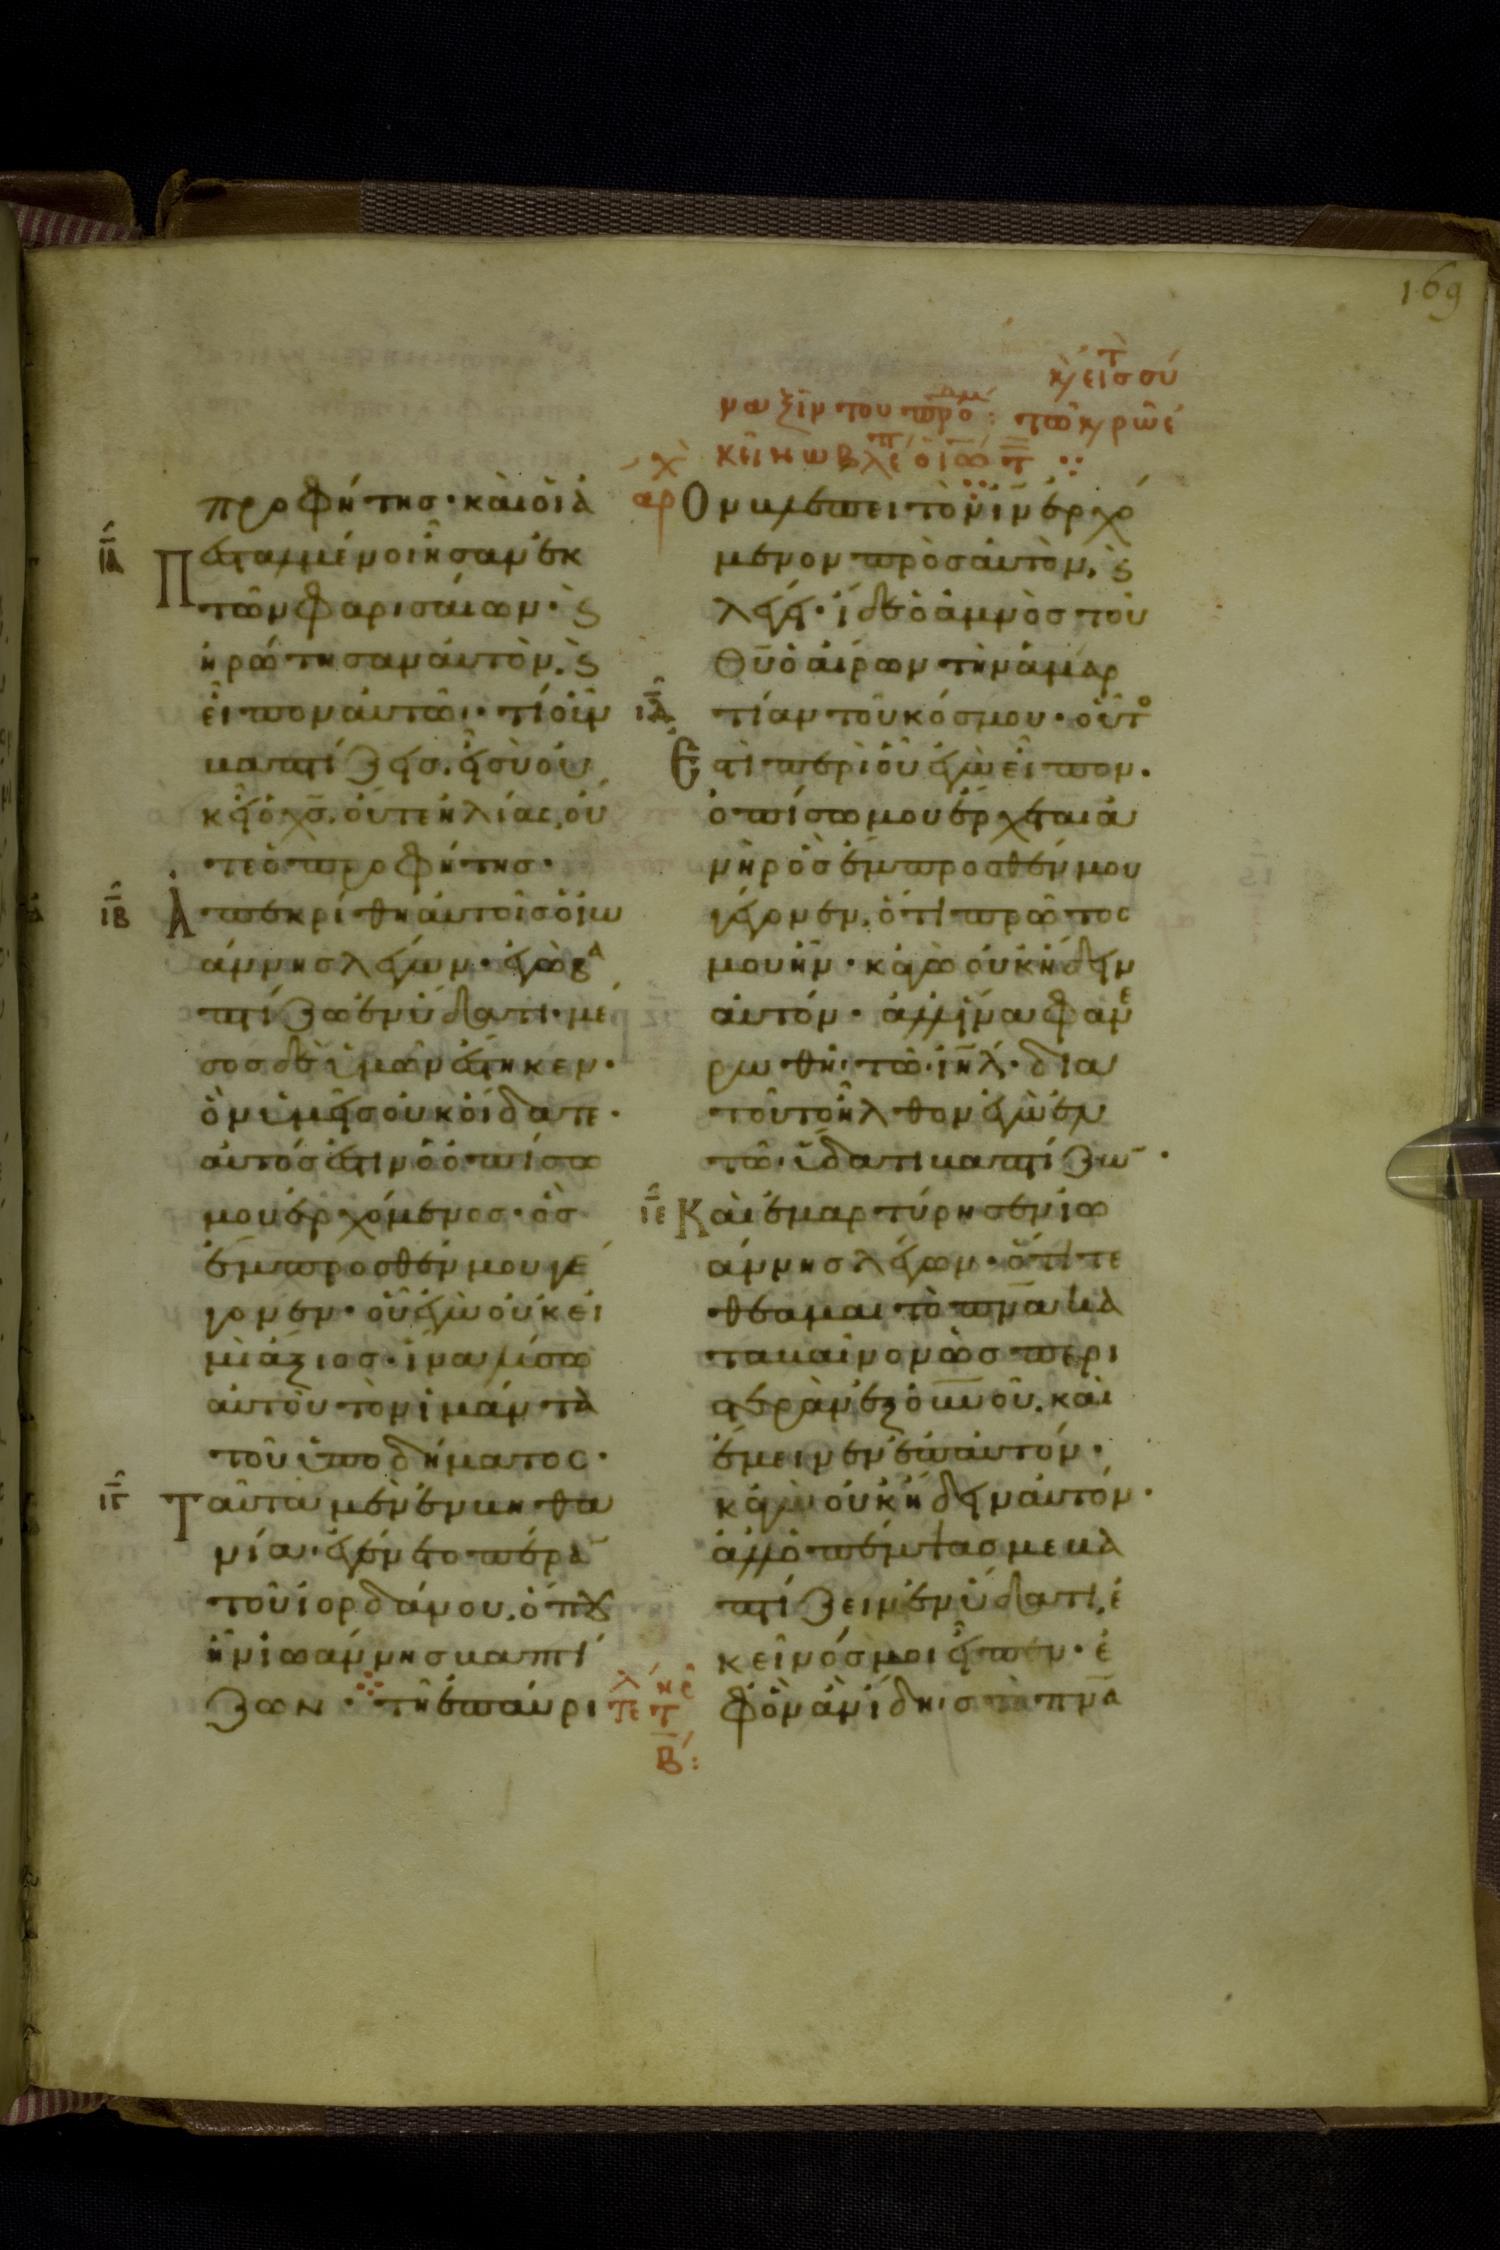 169
κ̀ εἰς τ̀ σύ
ναξιν τοῦ προδρομ: τῶ κρῶ ἐ
κείνω βλέπει ὁ ἰω τ
ἀρχ
προφήτης· καὶ οἱ ἀ
ια
πεσταλμένοι ἦσαν ἐκ
τῶν φαρισαίων· ϗ
ἠρώτησαν αὐτὸν, ϗ
εἶπον αὐτῶ· τί οὖν
βαπτίζεις, εἰ σὺ οὐ
κ εἶ ὁ χς, οὔτε ἠλίας, οὔ
τε ὁ προφήτης·
ιβ
Ἀπεκρίθη αὐτοῖς ὁ ἰω
άννης λέγων· ἐγὼ βα
πτίζω ἐν ὕδατι· μέ
σος δὲ ὑμῶν ἕστηκεν·
ὃν ὑμεῖς οὐκ οἴδατε·
αὐτός ἐστιν ὁ ὀπίσω
μου ἐρχόμενος· ὃς
ἔμπροσθέν μου γέ
γονεν· οὗ ἐγὼ οὐκ εἰ
μὶ ἄξιος· ἵνα λύσω
αὐτοῦ τὸν ἱμάντα
τοῦ ὑποδήματος·
ιγ
Ταῦτα μὲν ἐν βηθα
νία· ἐγένετο πέρα
τοῦ ἰορδάνου, ὅπου
ἦν ἰωάννης βαπτί
ζων· τῆ ἐπαύρι
τε λ
τ
β:
Ον βλέπει τὸν ἰν ἐρχό
μενον πρὸς αὐτὸν, ϗ
λέγει· ἴδε ὁ ἀμνὸς τοῦ
θυ ὁ αἴρων τὴν ἁμαρ
ιδ
τίαν τοῦ κόσμου· οὗτο
Ἐστὶ περὶ οὗ ἐγὼ εἶπον·
ὀπίσω μου ἔρχεται ἀ
νὴρ ὃς ἔμπροσθέν μου
γέγονεν, ὅτι πρῶτος
μου ἦν· κἀγὼ οὐκ ἤδειν
αὐτόν· ἀλλ' ἵνα φανε
ρωθῆ τῶ ἰηλ· δια
τοῦτο ἦλθον ἐγὼ ἐν
τῶ ὕδατι βαπτίζων·
ιε
Καὶ ἐμαρτύρησεν ἰω
άννης λέγων· ὅτι τε
θέαμαι τὸ πνα κα
ταβαῖνον ὡς περι
στερὰν ἐξ οὐνοῦ, καὶ
ἔμεινεν ἐπ' αὐτόν·
κἀγὼ οὐκ ἤδειν αὐτόν·
ἀλλ' ὁ πέμψας με βα
πτίζειν ἐν ὕδατι, ἐ
κεῖνός μοι εἶπεν· ἐ
φ' ὃν ἂν ἴδης τὸ πνα